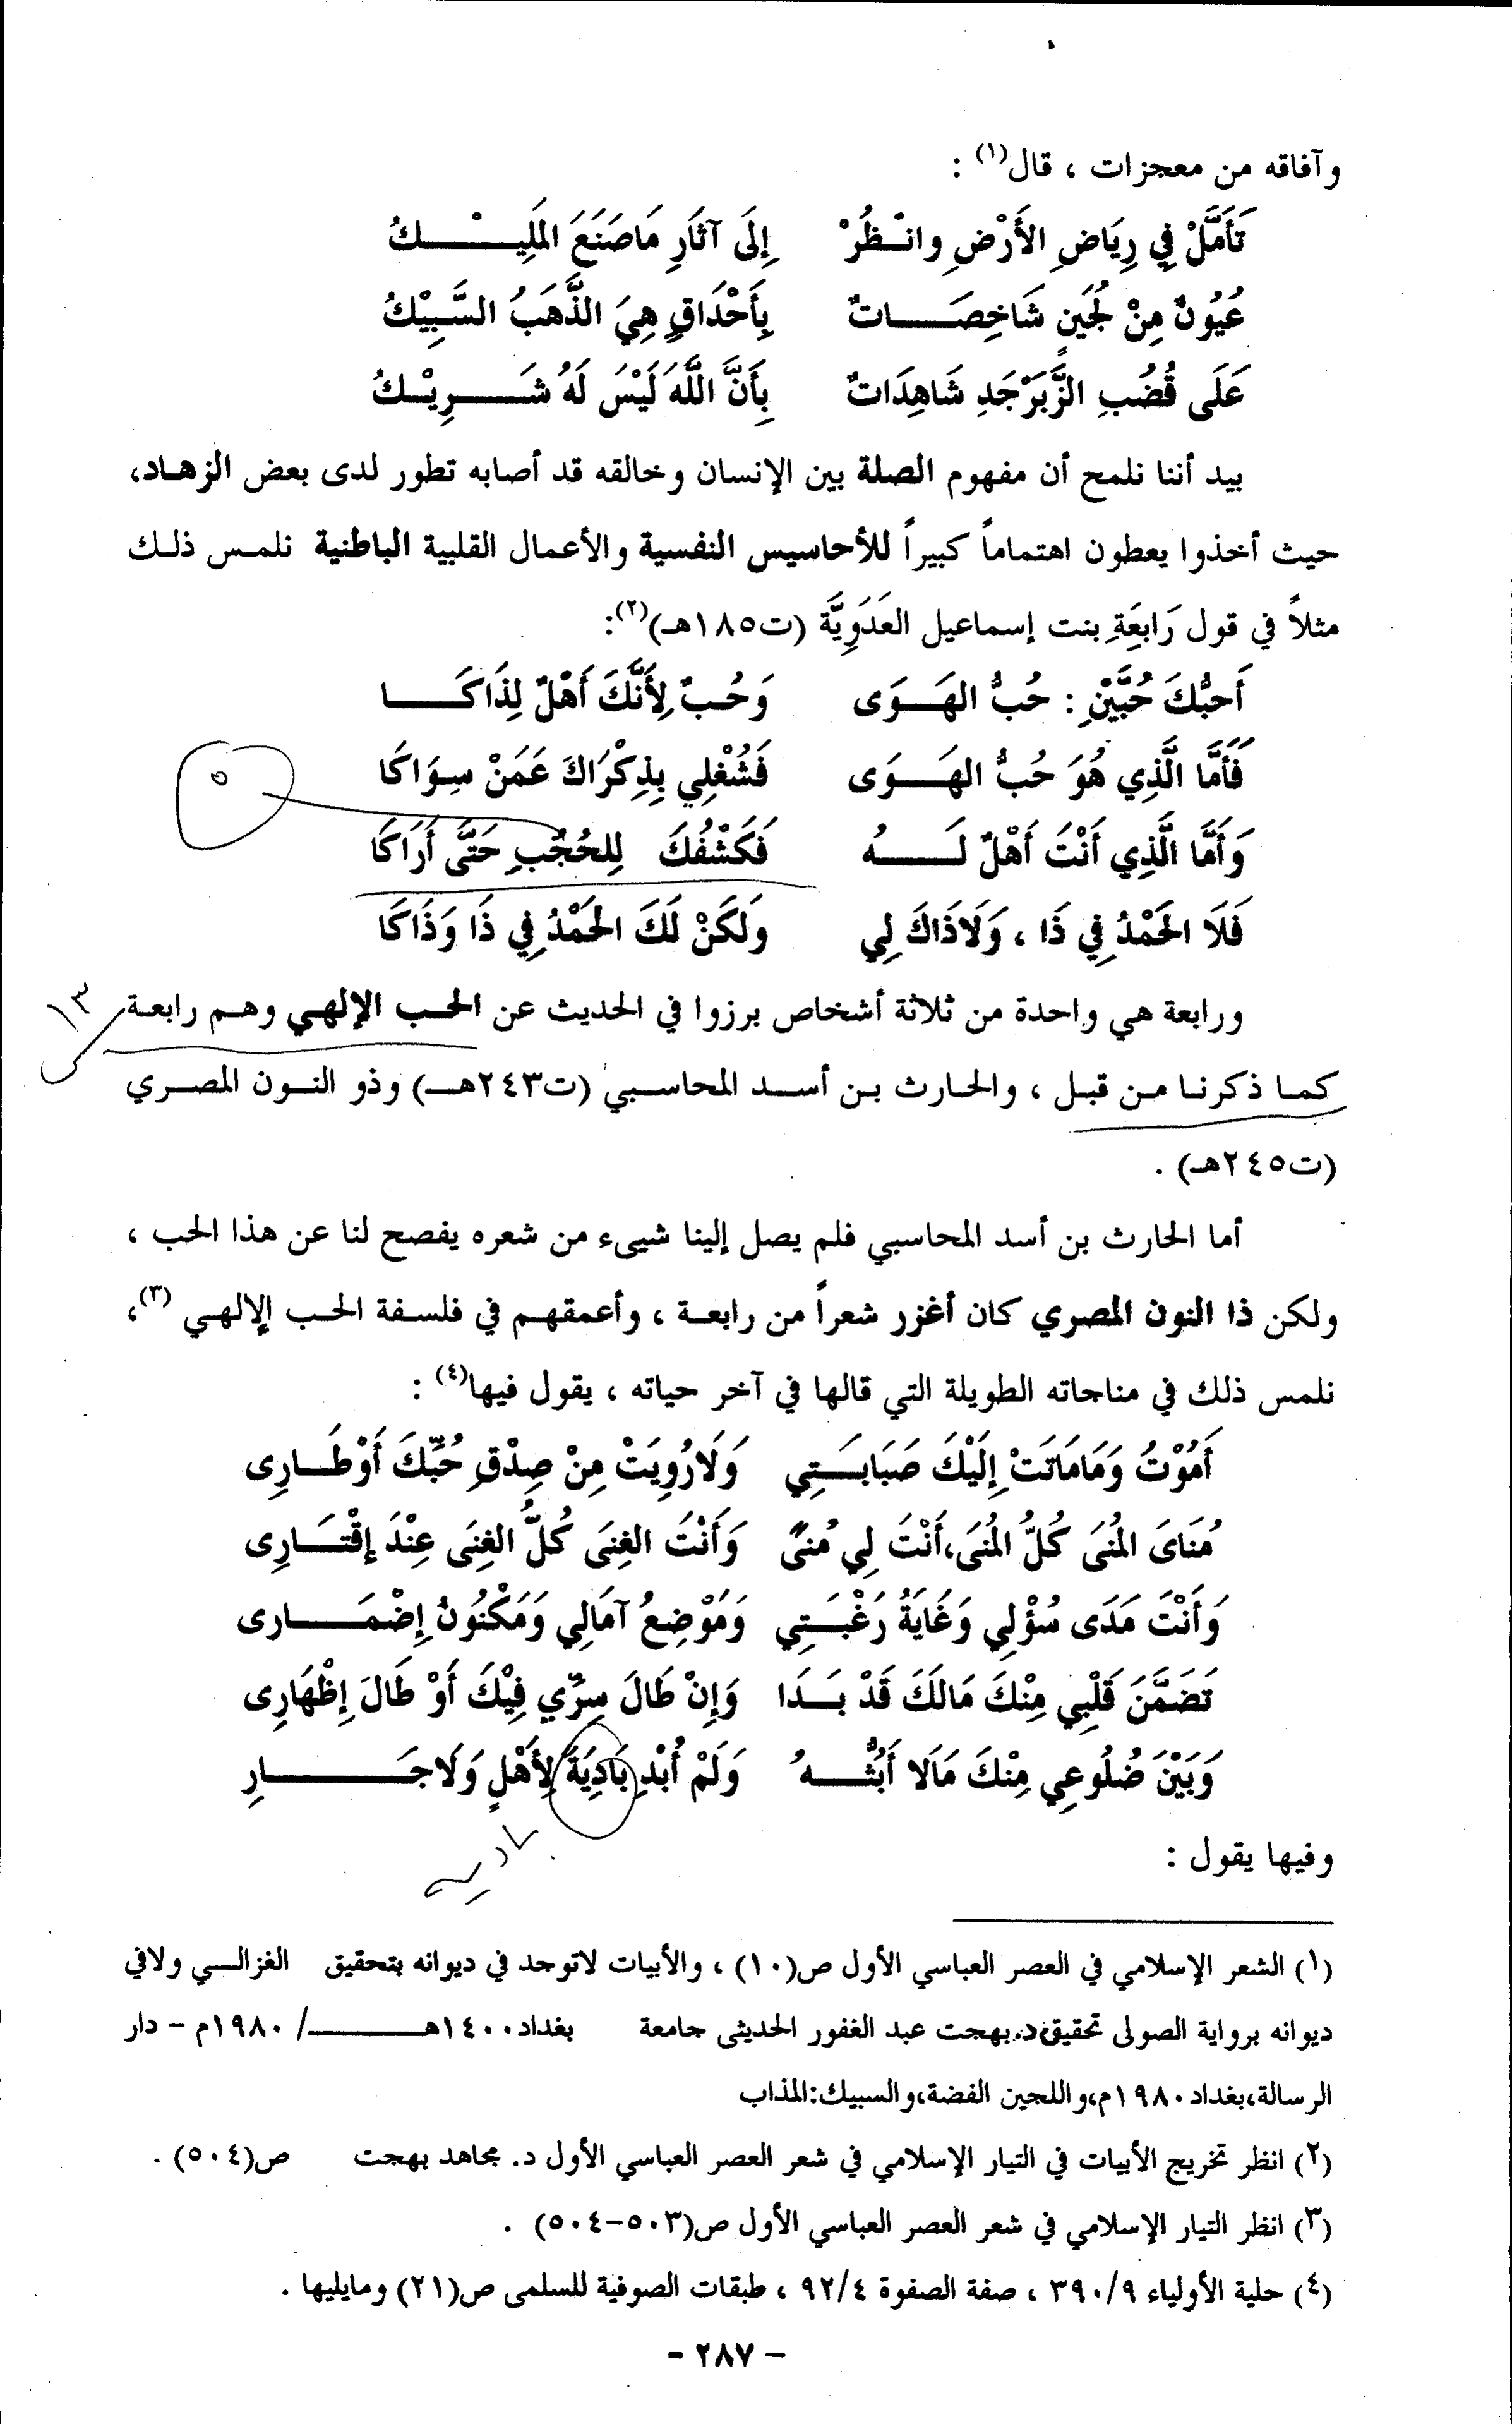 وآفاقه من معجزات ، قال(١) :
تَأَمَّلْ فِي رِيَاضِ الأَرْضِ وانْـظُرْ إِلَى آثَارِ مَاصَنَعَ المَلِيْـــــكُ
عُيُونٌ مِنْ لُجَينٍ شَاخِصَـــاتٌ بِأَحْدَاقٍ هِيَ الذَّهَبُ السَّبِيْكُ
عَلَى قُضُبِ الزَّبَرْجَدِ شَاهِدَاتٌ بِأَنَّ اللَّهَ لَيْسَ لَهُ شَـــرِيْـكُ
بيد أننا نلمح أن مفهوم الصلة بين الإنسان وخالقه قد أصابه تطور لدى بعض الزهـاد،
حيث أخذوا يعطون اهتماماً كبيراً للأحاسيس النفسية والأعمال القلبية الباطنية نلمـس ذلـك
مثلاً في قول رَابِعَةِ بنت إسماعيل العَدَوِيَّة (ت١٨٥هـ)(٢):
أَحبُّكَ حُبَّيْنِ : حُبُّ الهَـــوَى وَحُـبٌ لِأَنَّكَ أَهْلٌ لِذَاكَـــا
فَأَمَّا الَّذِي هُوَ حُبُّ الهَـــوَى فَشُغْلِي بِذِكْرَاكَ عَمَنْ سِوَاكَا
٥
وَأَمَّا الَّذِي أَنْتَ أَهْلٌ لَـــهُ فَكَشْفُكَ لِلحُجْبِ حَتَّى أَرَاكَا
فَلَا الحَمْدُ فِي ذَا ، وَلَاذَاكَ لِي وَلَكَنْ لَكَ الحَمْدُ فِي ذَا وَذَاكَا
ورابعة هي واحدة من ثلاثة أشخاص برزوا في الحديث عن الحـب الإلهـي وهـم رابعـة
١٣
كمـا ذكرنـا مـن قبـل ، والحـارث بـن أسـد المحاسـبي (ت٢٤٣هـ) وذو النـون المصـري
(ت٢٤٥هـ) .
أما الحارث بن أسد المحاسبي فلم يصل إلينا شيىء من شعره يفصح لنا عن هذا الحب ،
ولكن ذا النون المصري كان أغزر شعراً من رابعـة ، وأعمقهـم في فلسـفة الحـب الإلهـي (٣)،
نلمس ذلك في مناجاته الطويلة التي قالها في آخر حياته ، يقول فيها(٤) :
أَمُوْتُ وَمَامَاتَتْ إِلَيْكَ صَبَابَـتِي وَلَارُوِيَتْ مِنْ صِدْقِ حُبِّكَ أَوْطَـارِى
مُنَاىَ المُنَى كُلُّ المُنَى،أَنْتَ لِي مُنىً وَأَنْتَ الغِنَى كُلُّ الغِنَى عِنْدَ إِقْتَـارِى
وَأَنْتَ مَدَى سُؤْلِي وَغَايَةُ رَغْبَـتِي وَمَوْضِعُ آمَالِي وَمَكْنُونُ إِضْمَـــارى
تَضَمَّنَ قَلْبِي مِنْكَ مَالَكَ قَدْ بَـدَا وَإِنْ طَالَ سِرِّي فِيْكَ أَوْ طَالَ إِظْهَارِى
وَبَيْنَ ضُلُوعِي مِنْكَ مَالَا أَبُثُّــهُ وَلَمْ أُبْدِ بَادِيَةً لِأَهْلٍ وَلَاجَـــــارِ
باديه
وفيها يقول :
(١) الشعر الإسلامي في العصر العباسي الأول ص(١٠) ، والأبيات لاتوجد في ديوانه بتحقيق الغزالـي ولافي
ديوانه برواية الصولى تحقيق،د.بهجت عبد الغفور الحديثى جامعة بغداد١٤٠٠هـــــ/ ١٩٨٠م – دار
الرسالة،بغداد١٩٨٠م،واللجين الفضة،والسبيك:المذاب
(٢) انظر تخريج الأبيات في التيار الإسلامي في شعر العصر العباسي الأول د. مجاهد بهجت ص(٥٠٤) .
(٣) انظر التيار الإسلامي في شعر العصر العباسي الأول ص(٥٠٣-٥٠٤) .
(٤) حلية الأولياء ٣٩٠/٩ ، صفة الصفوة ٩٢/٤ ، طبقات الصوفية للسلمى ص(٢١) ومايليها .
- ٢٨٧ -